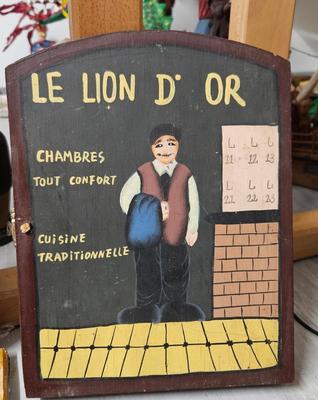 LE LION D' OR
CHAMBRES
TOUT CONFORT
CUISINE
TRADITIONNELLE
11 12 13
21 22 23